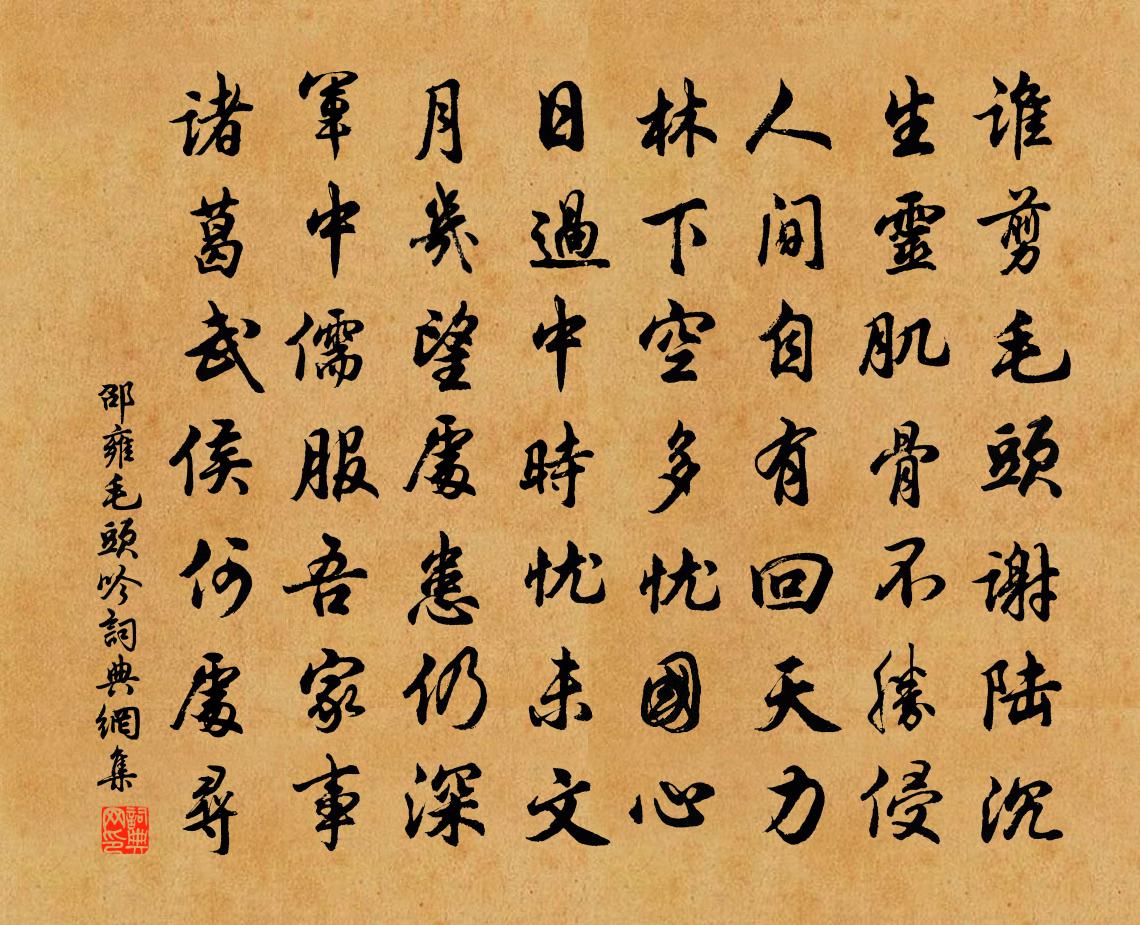 谁剪毛頭謝陆沉
生靈肌骨不勝侵
人间自有回天力
林下空多忧國心
日過中時忧未文
月幾望處患仍深
軍中儒服吾家事
诸葛武侯何處尋
邵雍毛頭吟詞典網集
詞典网印